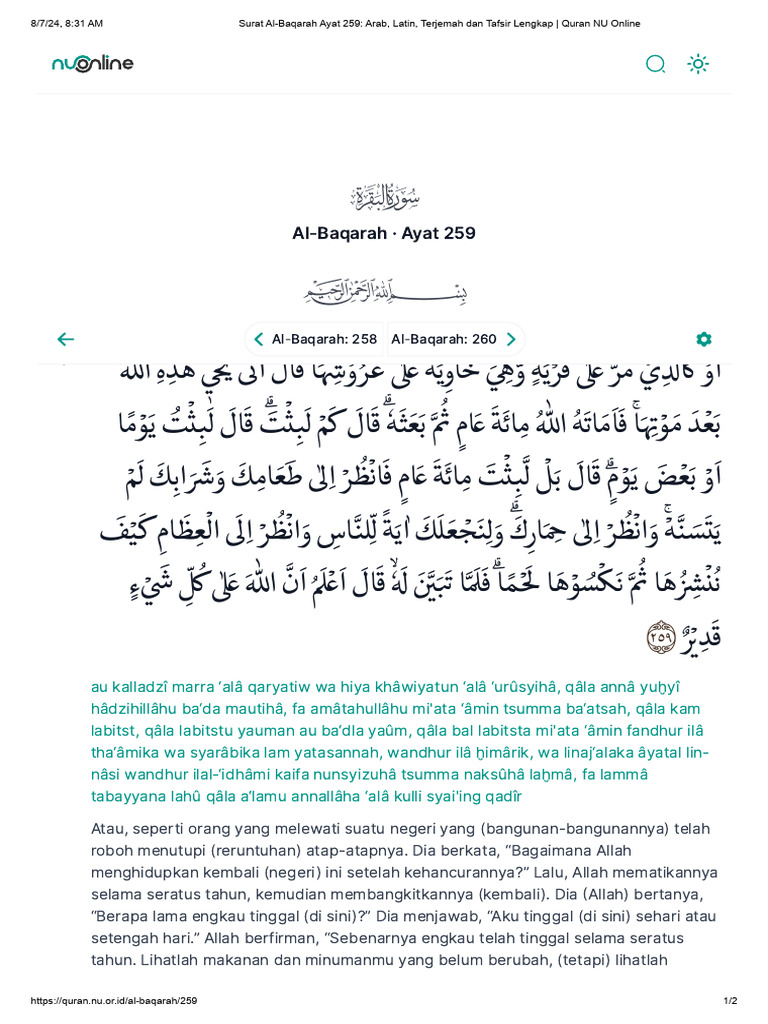 8/7/24, 8:31 AM Surat Al-Baqarah Ayat 259: Arab, Latin, Terjemah dan Tafsir Lengkap | Quran NU Online
nuonline
سُورَةُ الْبَقَرَةِ
Al-Baqarah · Ayat 259
بِسْمِ اللهِ الرَّحْمٰنِ الرَّحِيْمِ
Al-Baqarah: 258 Al-Baqarah: 260
اَوْ كَالَّذِيْ مَرَّ عَلٰى قَرْيَةٍ وَّهِيَ خَاوِيَةٌ عَلٰى عُرُوْشِهَاۚ قَالَ اَنّٰى يُحْيٖ هٰذِهِ اللّٰهُ
بَعْدَ مَوْتِهَاۚ فَاَمَاتَهُ اللّٰهُ مِائَةَ عَامٍ ثُمَّ بَعَثَهٗۗ قَالَ كَمْ لَبِثْتَۗ قَالَ لَبِثْتُ يَوْمًا
اَوْ بَعْضَ يَوْمٍۗ قَالَ بَلْ لَّبِثْتَ مِائَةَ عَامٍ فَانْظُرْ اِلٰى طَعَامِكَ وَشَرَابِكَ لَمْ
يَتَسَنَّهْۚ وَانْظُرْ اِلٰى حِمَارِكَۗ وَلِنَجْعَلَكَ اٰيَةً لِّلنَّاسِ وَانْظُرْ اِلَى الْعِظَامِ كَيْفَ
نُنْشِزُهَا ثُمَّ نَكْسُوْهَا لَحْمًاۗ فَلَمَّا تَبَيَّنَ لَهٗۙ قَالَ اَعْلَمُ اَنَّ اللّٰهَ عَلٰى كُلِّ شَيْءٍ
قَدِيْرٌ ٢٥٩
au kalladzî marra ‘alâ qaryatiw wa hiya khâwiyatun ‘alâ ‘urûsyihâ, qâla annâ yuḫyî
hâdzihillâhu ba‘da mautihâ, fa amâtahullâhu mi'ata ‘âmin tsumma ba‘atsah, qâla kam
labitst, qâla labitstu yauman au ba‘dla yaûm, qâla bal labitsta mi'ata ‘âmin fandhur ilâ
tha‘âmika wa syarâbika lam yatasannah, wandhur ilâ ḫimârik, wa linaj‘alaka âyatal lin-
nâsi wandhur ilal-‘idhâmi kaifa nunsyizuhâ tsumma naksûhâ laḫmâ, fa lammâ
tabayyana lahû qâla a‘lamu annallâha ‘alâ kulli syai'ing qadîr
Atau, seperti orang yang melewati suatu negeri yang (bangunan-bangunannya) telah
roboh menutupi (reruntuhan) atap-atapnya. Dia berkata, “Bagaimana Allah
menghidupkan kembali (negeri) ini setelah kehancurannya?” Lalu, Allah mematikannya
selama seratus tahun, kemudian membangkitkannya (kembali). Dia (Allah) bertanya,
“Berapa lama engkau tinggal (di sini)?” Dia menjawab, “Aku tinggal (di sini) sehari atau
setengah hari.” Allah berfirman, “Sebenarnya engkau telah tinggal selama seratus
tahun. Lihatlah makanan dan minumanmu yang belum berubah, (tetapi) lihatlah
https://quran.nu.or.id/al-baqarah/259 1/2